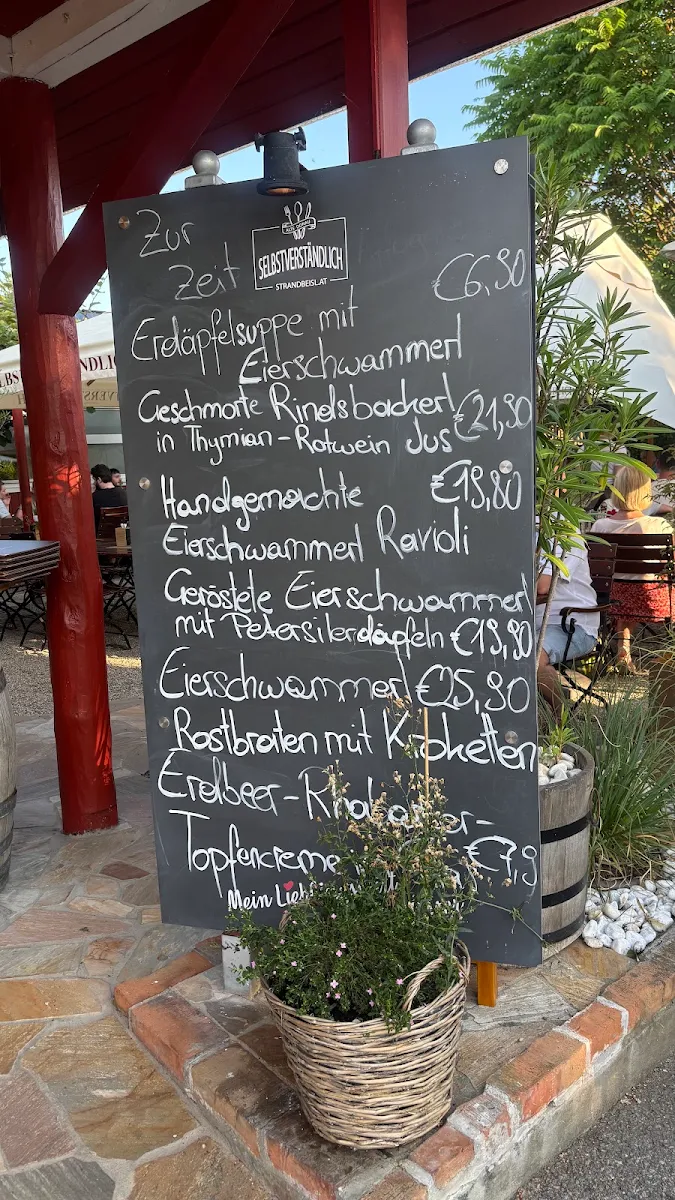 Zur
Zeit
SELBSTVERSTÄNDLICH
STRANDBEISL.AT
€6,90
Erdäpfelsuppe mit
Eierschwammerl
Geschmorte Rindsbackerl €21,90
in Thymian-Rotwein Jus
Handgemachte €19,80
Eierschwammerl Ravioli
Geröstete Eierschwammerl
mit Petersilerdäpfeln €19,90
Eierschwammerl €25,90
Rostbraten mit Kroketten
Erdbeer-Rhabarber-
Topfencreme €7,9
Mein